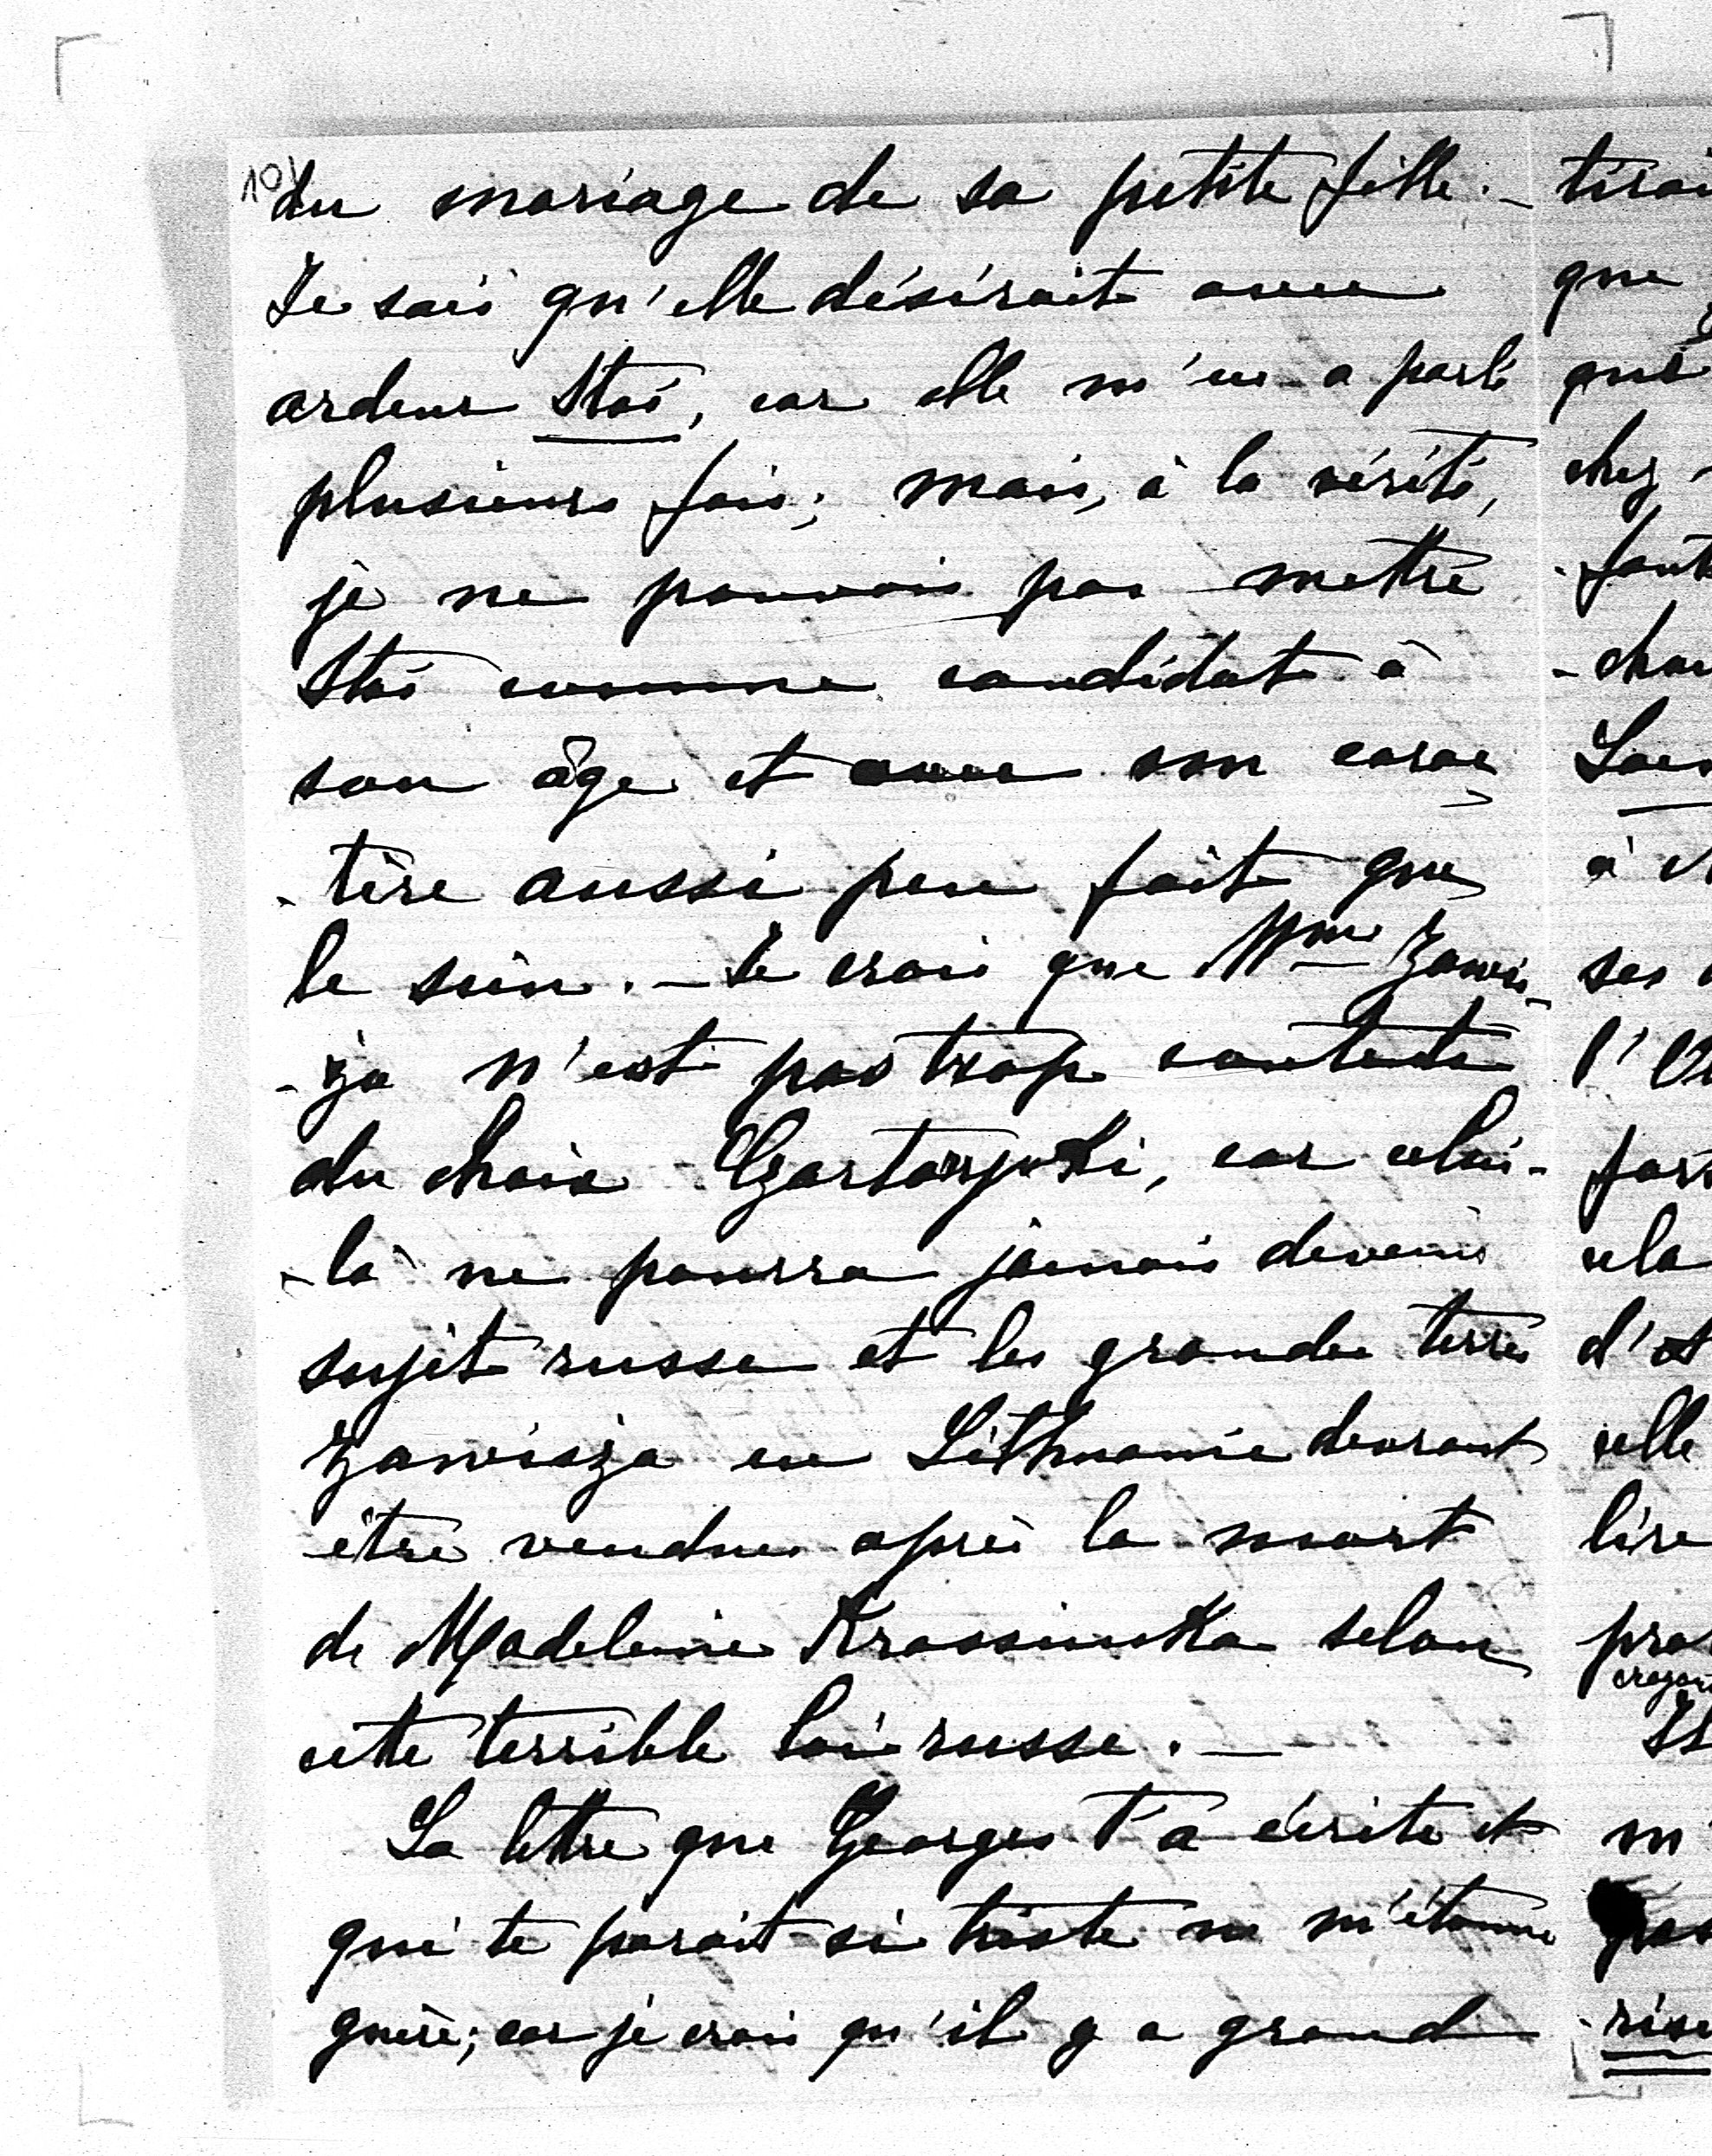 10)
du mariage de sa petite fille. –
Je sais qu'elle désirait avec
ardeur Staś, car elle m'en a parlé
plusieurs fois; mais, à la vérité,
je ne pouvais pas mettre
Staś comme candidat à
son âge et avec son carac
-tère aussi peu fait que
le sien. – Je crois que Mme Zawis-
-za n'est pas trop contente
du choix Czartoryski, car celui-
-là ne pourra jamais devenir
sujet russe et les grandes terres
Zawisza en Lithuanie devront
être vendues après la mort
de Madeleine Krassinska selon
cette terrible loi russe. –
La lettre que Georges t'a écrite et
qui te parait si triste ne m'étonne
guère; car je crois qu'il y a grand
que
qui
chez
à
ses
cela
elle
lire
m'